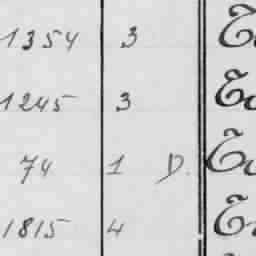 1354 3
1245 3
74 1 D.
1815 4